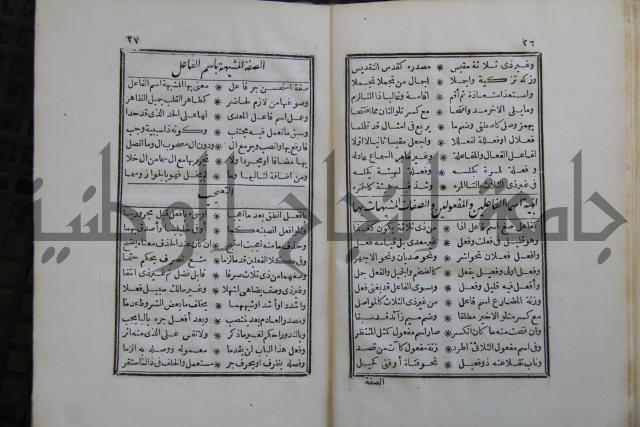 ٣٦
وغير ذي ثلاثة مقيس * مصدره كقدس التقديس
وزكه تزكية واجملا * اجمال من تجملا تجملا
واستعذ استعاذة ثم أقم * اقامة وغالبا ذا التا لزم
وما يلي الآخر مد وافتحا * مع كسر تلو الثان مما افتتحا
بهمز وصل كاصطفى وضم ما * يربع في أمثال قد تلملما
فعلال اوفعللة لفعللا * واجعل مقيسا ثانيا لا أولا
لفاعل الفعال والمفاعله * وغير ما مر السماع عادله
وفعلة لمرة كجلسه * وفعلة لهيئة كجلسه
في غير ذي الثلاث بالتا المره * وشذ فيه هيئة كالخمره
أبنية أسماء الفاعلين والمفعولين والصفات المشبهات بها
كفاعل صغ اسم فاعل اذا * من ذي ثلاثة يكون كغذا
وهو قليل في فعلت وفعل * غير معدى بل قياسه فعل
وأفعل فعلان نحو أشر * ونحو صديان ونحو الاجهر
وفعل اولى وفعيل بفعل * كالضخم والجميل والفعل جمل
وأفعل فيه قليل وفعل * وبسوى الفاعل قد يغنى فعل
وزنة المضارع اسم فاعل * من غير ذي الثلاث كالمواصل
مع كسر متلو الاخير مطلقا * وضم ميم زائد قد سبقا
وان فتحت منه ما كان انكسر * صار اسم مفعول كمثل المنتظر
وفي اسم مفعول الثلاثي اطرد * زنة مفعول كآت من قصد
وناب نقلا عنه ذو فعيل * نحو فتاة أو فتى كحيل
الصفة
٣٧
الصفة المشبهة باسم الفاعل
صفة استحسن جر فاعل * معنى بها المشبهة اسم الفاعل
وصوغها من لازم لحاضر * كطاهر القلب جميل الظاهر
وعمل اسم فاعل المعدى * لها على الحد الذي قد حدا
وسبق ما تعمل فيه مجتنب * وكونه ذا سببية وجب
فارفع بها وانصب وجر مع ال * ودون ال مصحوب ال وما اتصل
بها مضافا اومجردا ولا * تجرر بها مع ال سما من ال خلا
ومن اضافة لتاليها وما * لم يخل فهو بالجواز وسما
التعجب
بأفعل انطق بعد ما تعجبا * أوجئ بأفعل قبل مجرور ببا
وتلو أفعل انصبنه كما * أوفى خليلينا وأصدق بهما
وحذف ما منه تعجبت استبح * ان كان عند الحذف معناه يضح
وفي كلا الفعلين قدما لزما * منع تصرف بحكم حتما
وصغهما من ذي ثلاث صرفا * قابل فضل تم غير ذي انتفا
وغير ذي وصف يضاهي أشهلا * وغير سالك سبيل فعلا
وأشدد اوأشد أوشبههما * يخلف ما بعض الشروط عدما
ومصدر العادم بعد ينتصب * وبعد أفعل جره بالبا يجب
وبالندور احكم لغير ما ذكر * ولا تقس على الذي منه أثر
وفعل هذا الباب لن يقدما * معموله ووصله به الزما
وفصله بظرف اوبحرف جر * مستعمل والخلف في ذاك استقر
جامعة النجاح الوطنية